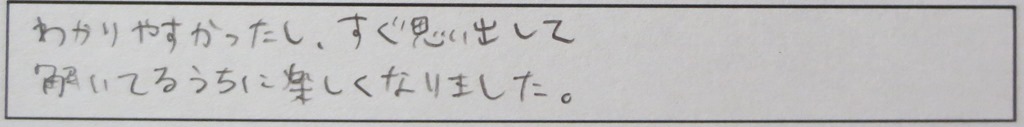 わかりやすかったし、すぐ思い出して
解いてるうちに楽しくなりました。